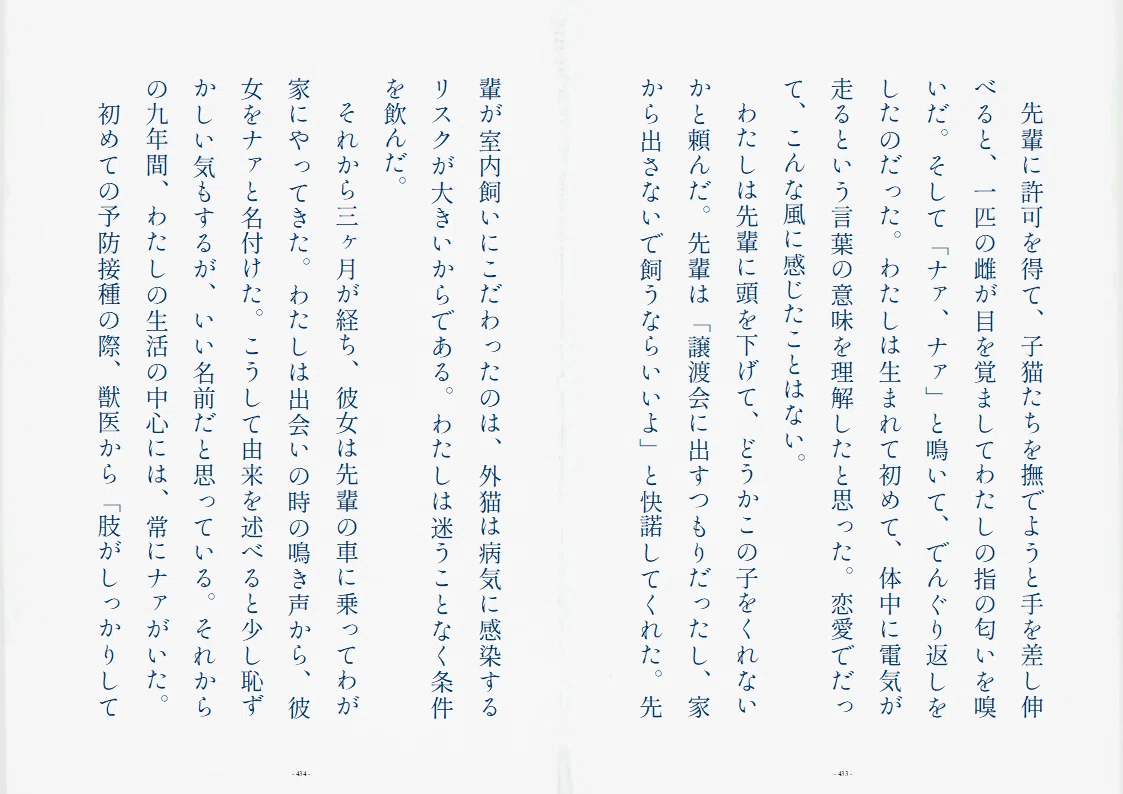 先輩に許可を得て、子猫たちを撫でようと手を差し伸
べると、一匹の雌が目を覚ましてわたしの指の匂いを嗅
いだ。そして「ナァ、ナァ」と鳴いて、でんぐり返しを
したのだった。わたしは生まれて初めて、体中に電気が
走るという言葉の意味を理解したと思った。恋愛でだっ
て、こんな風に感じたことはない。
わたしは先輩に頭を下げて、どうかこの子をくれない
かと頼んだ。先輩は「譲渡会に出すつもりだったし、家
から出さないで飼うならいいよ」と快諾してくれた。先
- 433 -
輩が室内飼いにこだわったのは、外猫は病気に感染する
リスクが大きいからである。わたしは迷うことなく条件
を飲んだ。
それから三ヶ月が経ち、彼女は先輩の車に乗ってわが
家にやってきた。わたしは出会いの時の鳴き声から、彼
女をナァと名付けた。こうして由来を述べると少し恥ず
かしい気もするが、いい名前だと思っている。それから
の九年間、わたしの生活の中心には、常にナァがいた。
初めての予防接種の際、獣医から「肢がしっかりして
- 434 -